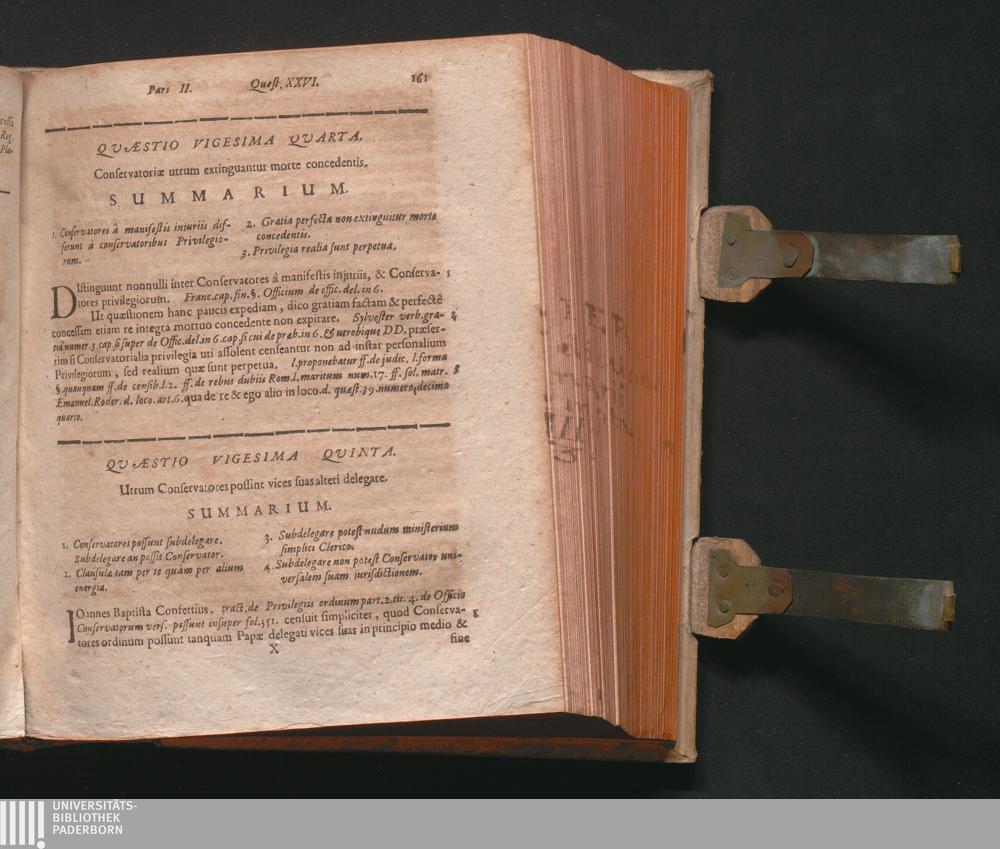 Pars II. Quæst. XXVI. 161
QVÆSTIO VIGESIMA QVARTA.
Conservatoriæ utrum extinguantur morte concedentis.
SUMMARIUM.
1. Conservatores à manifestis iniuriis dif-
ferunt à conservatoribus Privilegio-
rum.
2. Gratia perfecta non extinguitur morte
concedentis.
3. Privilegia realia sunt perpetua.
DIstinguunt nonnulli inter Conservatores â manifestis injuriis, & Conserva- 1
tores privilegiorum. Franc. cap. fin. §. Officium de offic. del. in 6.
Ut quæstionem hanc paucis expediam, dico gratiam factam & perfectè
concessam etiam re integra mortuo concedente non expirare. Sylvester verb. gra- 2
tia numer. 3. cap. si super de Offic. del. in 6. cap. si cui de præb. in 6. & utrobique DD. præser-
tim si Conservatorialia privilegia uti assolent censeantur non ad instar personalium
Privilegiorum, sed realium quæ sunt perpetua. l. proponebatur ff. de judic. l. forma
§. quanquam ff. de censib. l. 2. ff. de rebus dubiis Rom. l. maritum num. 17. ff. sol. matr. 3
Emanuel. Roder. d. loco. art. 6. qua de re & ego alio in loco. d. quæst. 39. numero, decimo
quarto.
QVÆSTIO VIGESIMA QUINTA.
Utrum Conservatores possint vices suas alteri delegare.
SUMMARIUM.
1. Conservatores possunt subdelegare.
Subdelegare an possit Conservator.
2. Clausula tam per te quàm per alium
energia.
3. Subdelegare potest nudum ministerium
simplici Clerico.
4. Subdelegare non potest Conservator uni-
versalem suam jurisdictionem.
IOannes Baptista Confettius, tract. de Privilegiis ordinum part. 2. tit. 4. de Officio
Conservatorum vers. possunt insuper fol. 351. censuit simpliciter, quod Conserva- 1
tores ordinum possunt tanquam Papæ delegati vices suas in principio medio &
X fine
UNIVERSITÄTS-
BIBLIOTHEK
PADERBORN